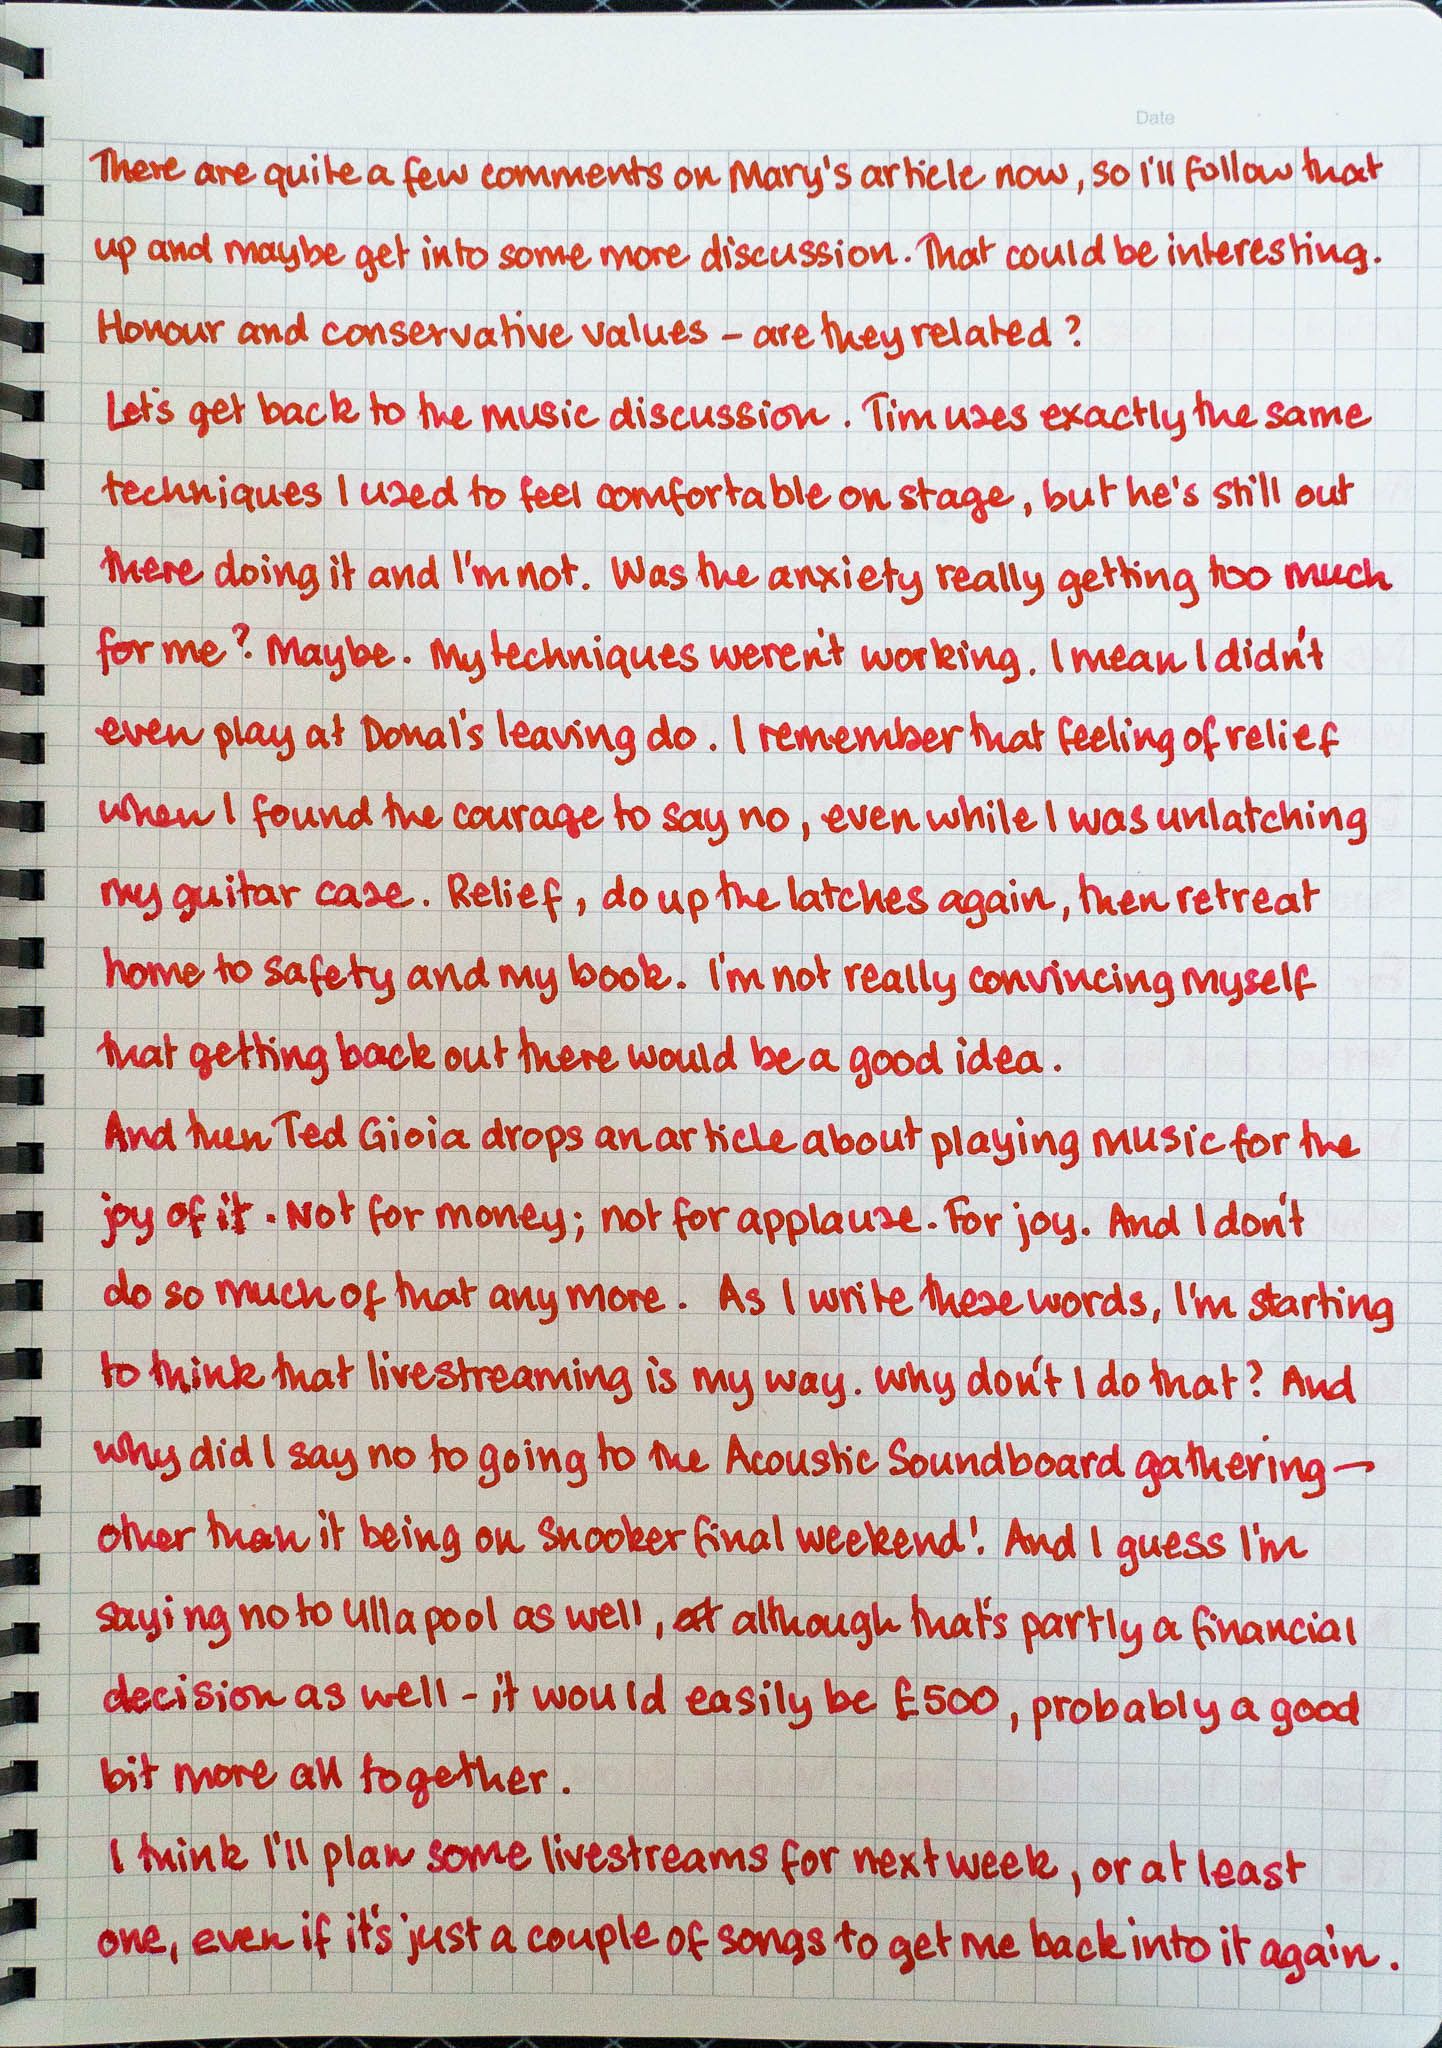 Date
There are quite a few comments on Mary's article now, so I'll follow that
up and maybe get into some more discussion. That could be interesting.
Honour and conservative values - are they related?
Let's get back to the music discussion. Tim uses exactly the same
techniques I used to feel comfortable on stage, but he's still out
there doing it and I'm not. Was the anxiety really getting too much
for me? Maybe. My techniques weren't working. I mean I didn't
even play at Donal's leaving do. I remember that feeling of relief
when I found the courage to say no, even while I was unlatching
my guitar case. Relief, do up the latches again, then retreat
home to safety and my book. I'm not really convincing myself
that getting back out there would be a good idea.
And then Ted Gioia drops an article about playing music for the
joy of it. Not for money; not for applause. For joy. And I don't
do so much of that any more. As I write these words, I'm starting
to think that livestreaming is my way. Why don't I do that? And
why did I say no to going to the Acoustic Soundboard gathering -
other than it being on Snooker final weekend! And I guess I'm
saying no to Ullapool as well, at although that's partly a financial
decision as well - it would easily be £500, probably a good
bit more all together.
I think I'll plan some livestreams for next week, or at least
one, even if it's just a couple of songs to get me back into it again.